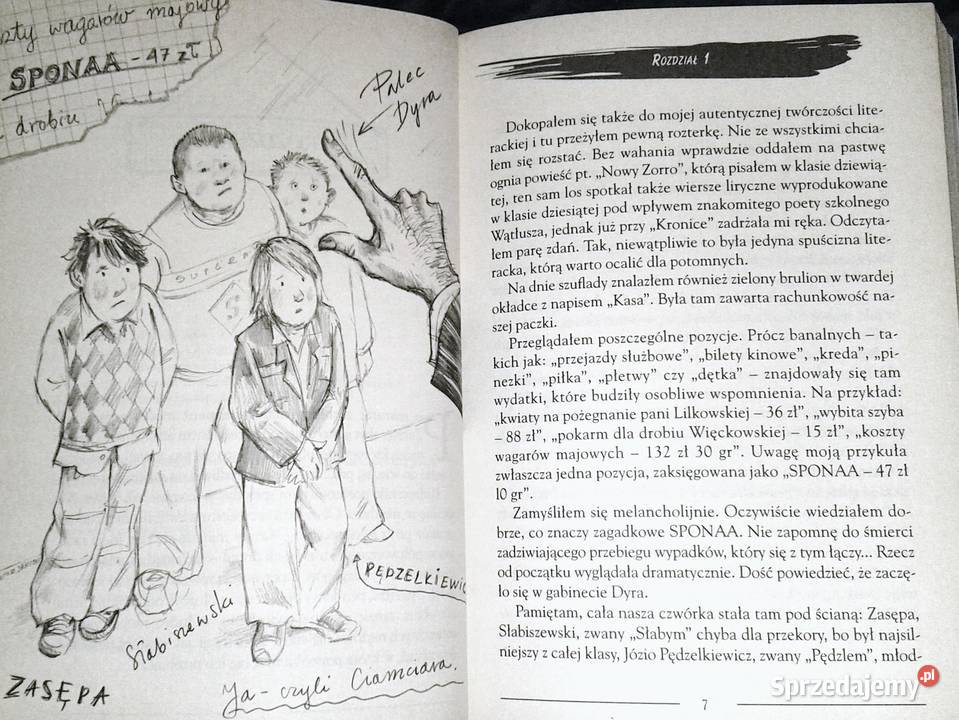 szty wagarów majowy
SPONAA - 47 zł
drobiu
Palec
Dyra
SUPER
S
PĘDZELKIEWIC
Słabiszewski
ZASĘPA
Ja - czyli Ciamciara.
ROZDZIAŁ 1
Dokopałem się także do mojej autentycznej twórczości lite-
rackiej i tu przeżyłem pewną rozterkę. Nie ze wszystkimi chcia-
łem się rozstać. Bez wahania wprawdzie oddałem na pastwę
ognia powieść pt. „Nowy Zorro”, którą pisałem w klasie dziewią-
tej, ten sam los spotkał także wiersze liryczne wyprodukowane
w klasie dziesiątej pod wpływem znakomitego poety szkolnego
Wątłusza, jednak już przy „Kronice” zadrżała mi ręka. Odczyta-
łem parę zdań. Tak, niewątpliwie to była jedyna spuścizna lite-
racka, którą warto ocalić dla potomnych.
Na dnie szuflady znalazłem również zielony brulion w twardej
okładce z napisem „Kasa”. Była tam zawarta rachunkowość na-
szej paczki.
Przeglądałem poszczególne pozycje. Prócz banalnych – ta-
kich jak: „przejazdy służbowe”, „bilety kinowe”, „kreda”, „pi-
nezki”, „piłka”, „płetwy” czy „dętka” – znajdowały się tam
wydatki, które budziły osobliwe wspomnienia. Na przykład:
„kwiaty na pożegnanie pani Lilkowskiej – 36 zł”, „wybita szyba
– 88 zł”, „pokarm dla drobiu Więckowskiej – 15 zł”, „koszty
wagarów majowych – 132 zł 30 gr”. Uwagę moją przykuła
zwłaszcza jedna pozycja, zaksięgowana jako „SPONAA – 47 zł
10 gr”.
Zamyśliłem się melancholijnie. Oczywiście wiedziałem do-
brze, co znaczy zagadkowe SPONAA. Nie zapomnę do śmierci
zadziwiającego przebiegu wypadków, który się z tym łączy... Rzecz
od początku wyglądała dramatycznie. Dość powiedzieć, że zaczę-
ło się w gabinecie Dyra.
Pamiętam, cała nasza czwórka stała tam pod ścianą: Zasępa,
Słabiszewski, zwany „Słabym” chyba dla przekory, bo był najsil-
niejszy z całej klasy, Józio Pędzelkiewicz, zwany „Pędzlem”, młod-
7
Sprzedajemy.pl